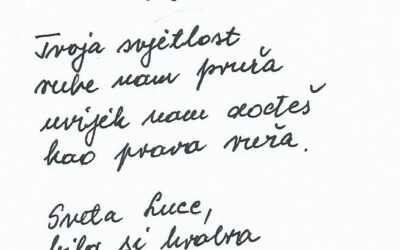 Tvoja svjetlost
ruke nam pruža
uvijek nam dođeš
kao prava ruža.
Sveta Luce,
bila si hrabra